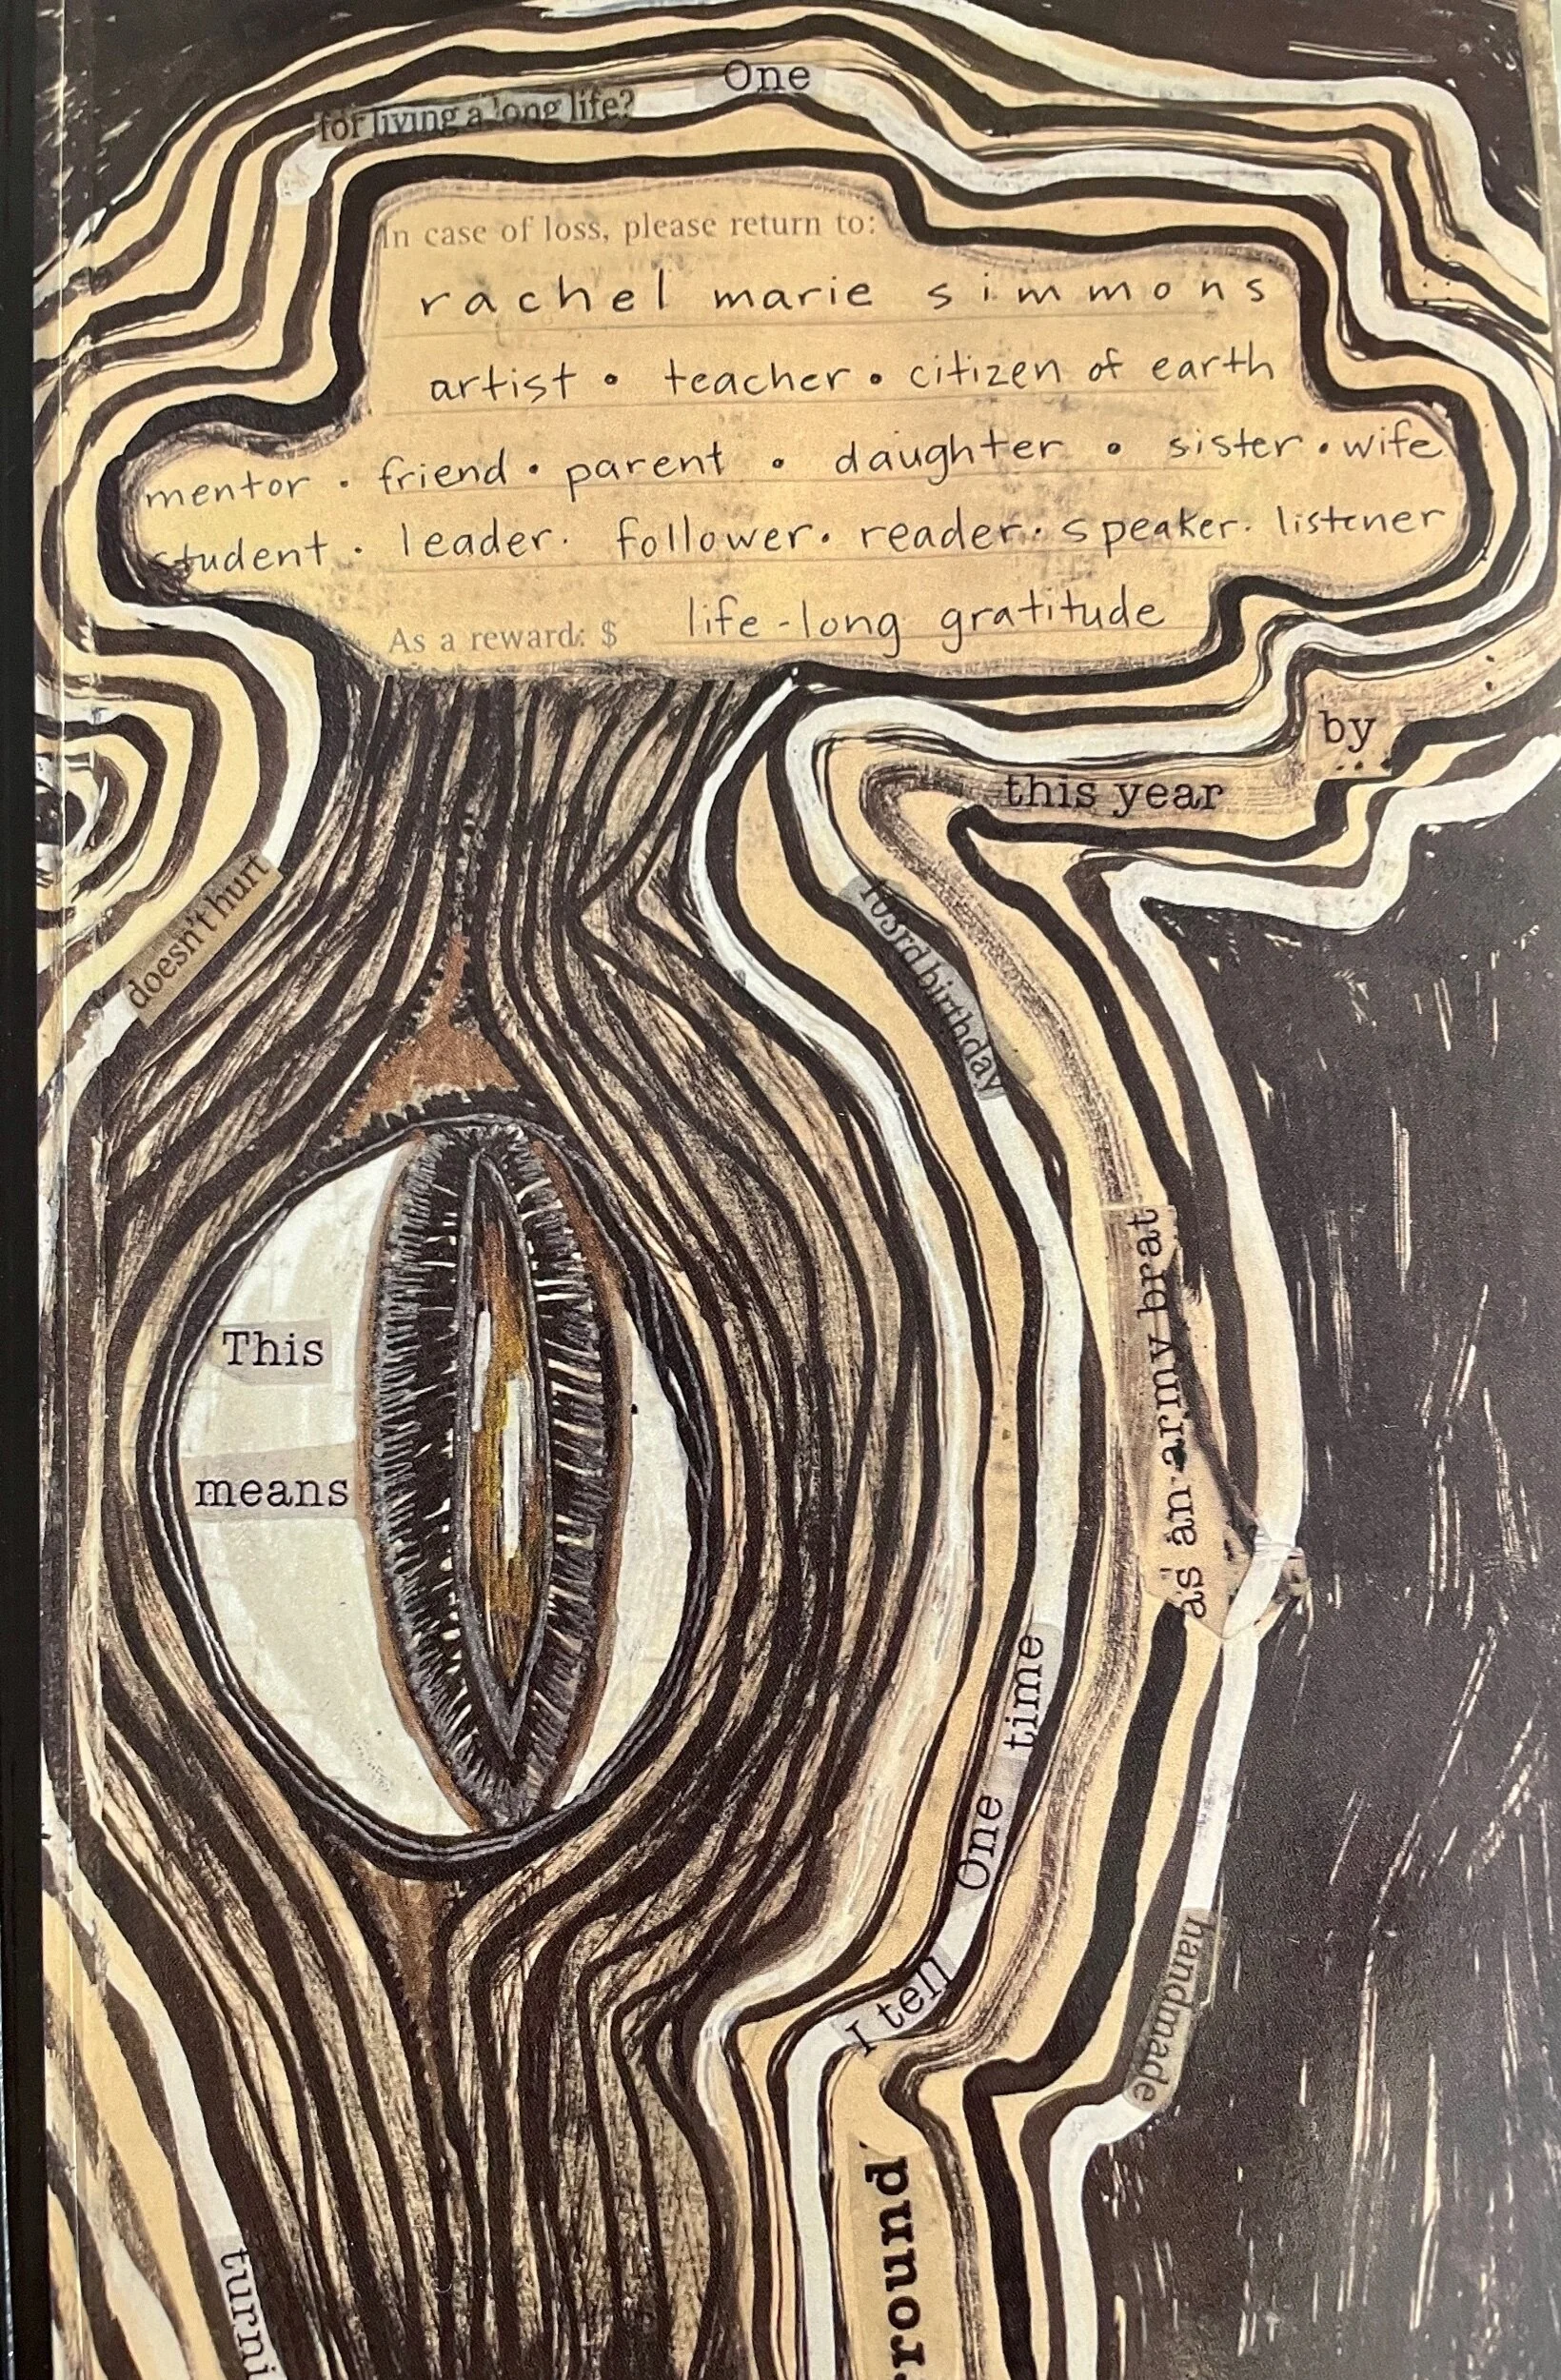 One
for living a long life?
In case of loss, please return to:
rachel marie simmons
artist • teacher • citizen of earth
mentor • friend • parent • daughter • sister • wife
student • leader • follower • reader • speaker • listener
As a reward: $ life-long gratitude
by
this year
doesn't hurt
103rd birthday
as an army brat
This
means
One time
I tell
handmade
round
turni